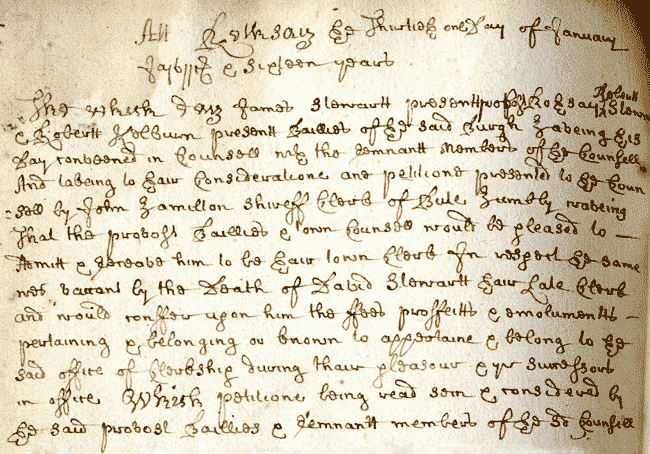 Att Rothsay the threttie one day of January
Jajvijc & sixteen years
The which day James Stewartt present provost of Rothsay Robert Stewart
& Robertt Kelburn present Baillies of the said Burgh haveing this
day conveened in Councell with the remnant Members of the Councill
And takeing to thair Consideratione ane petitione presented to the Coun
sell by John Hamilton shireff Clerk of Bute humbly craveing
That the provost Baillies & town Councell would be pleased to
Admitt & receave him to be thair town Clerk In respect the same
wes vaccant by the Death of David Stewartt thair Late Clerk
and would conffer upon him the ffees proffeitts & emoluments
pertaining & belonging or known to appertaine & belong to the
said office of Clerkship during thair pleasour & yr successors
in office Which petitione being read seen & considered by
the said provost Baillies & remnantt members of the sd Councill